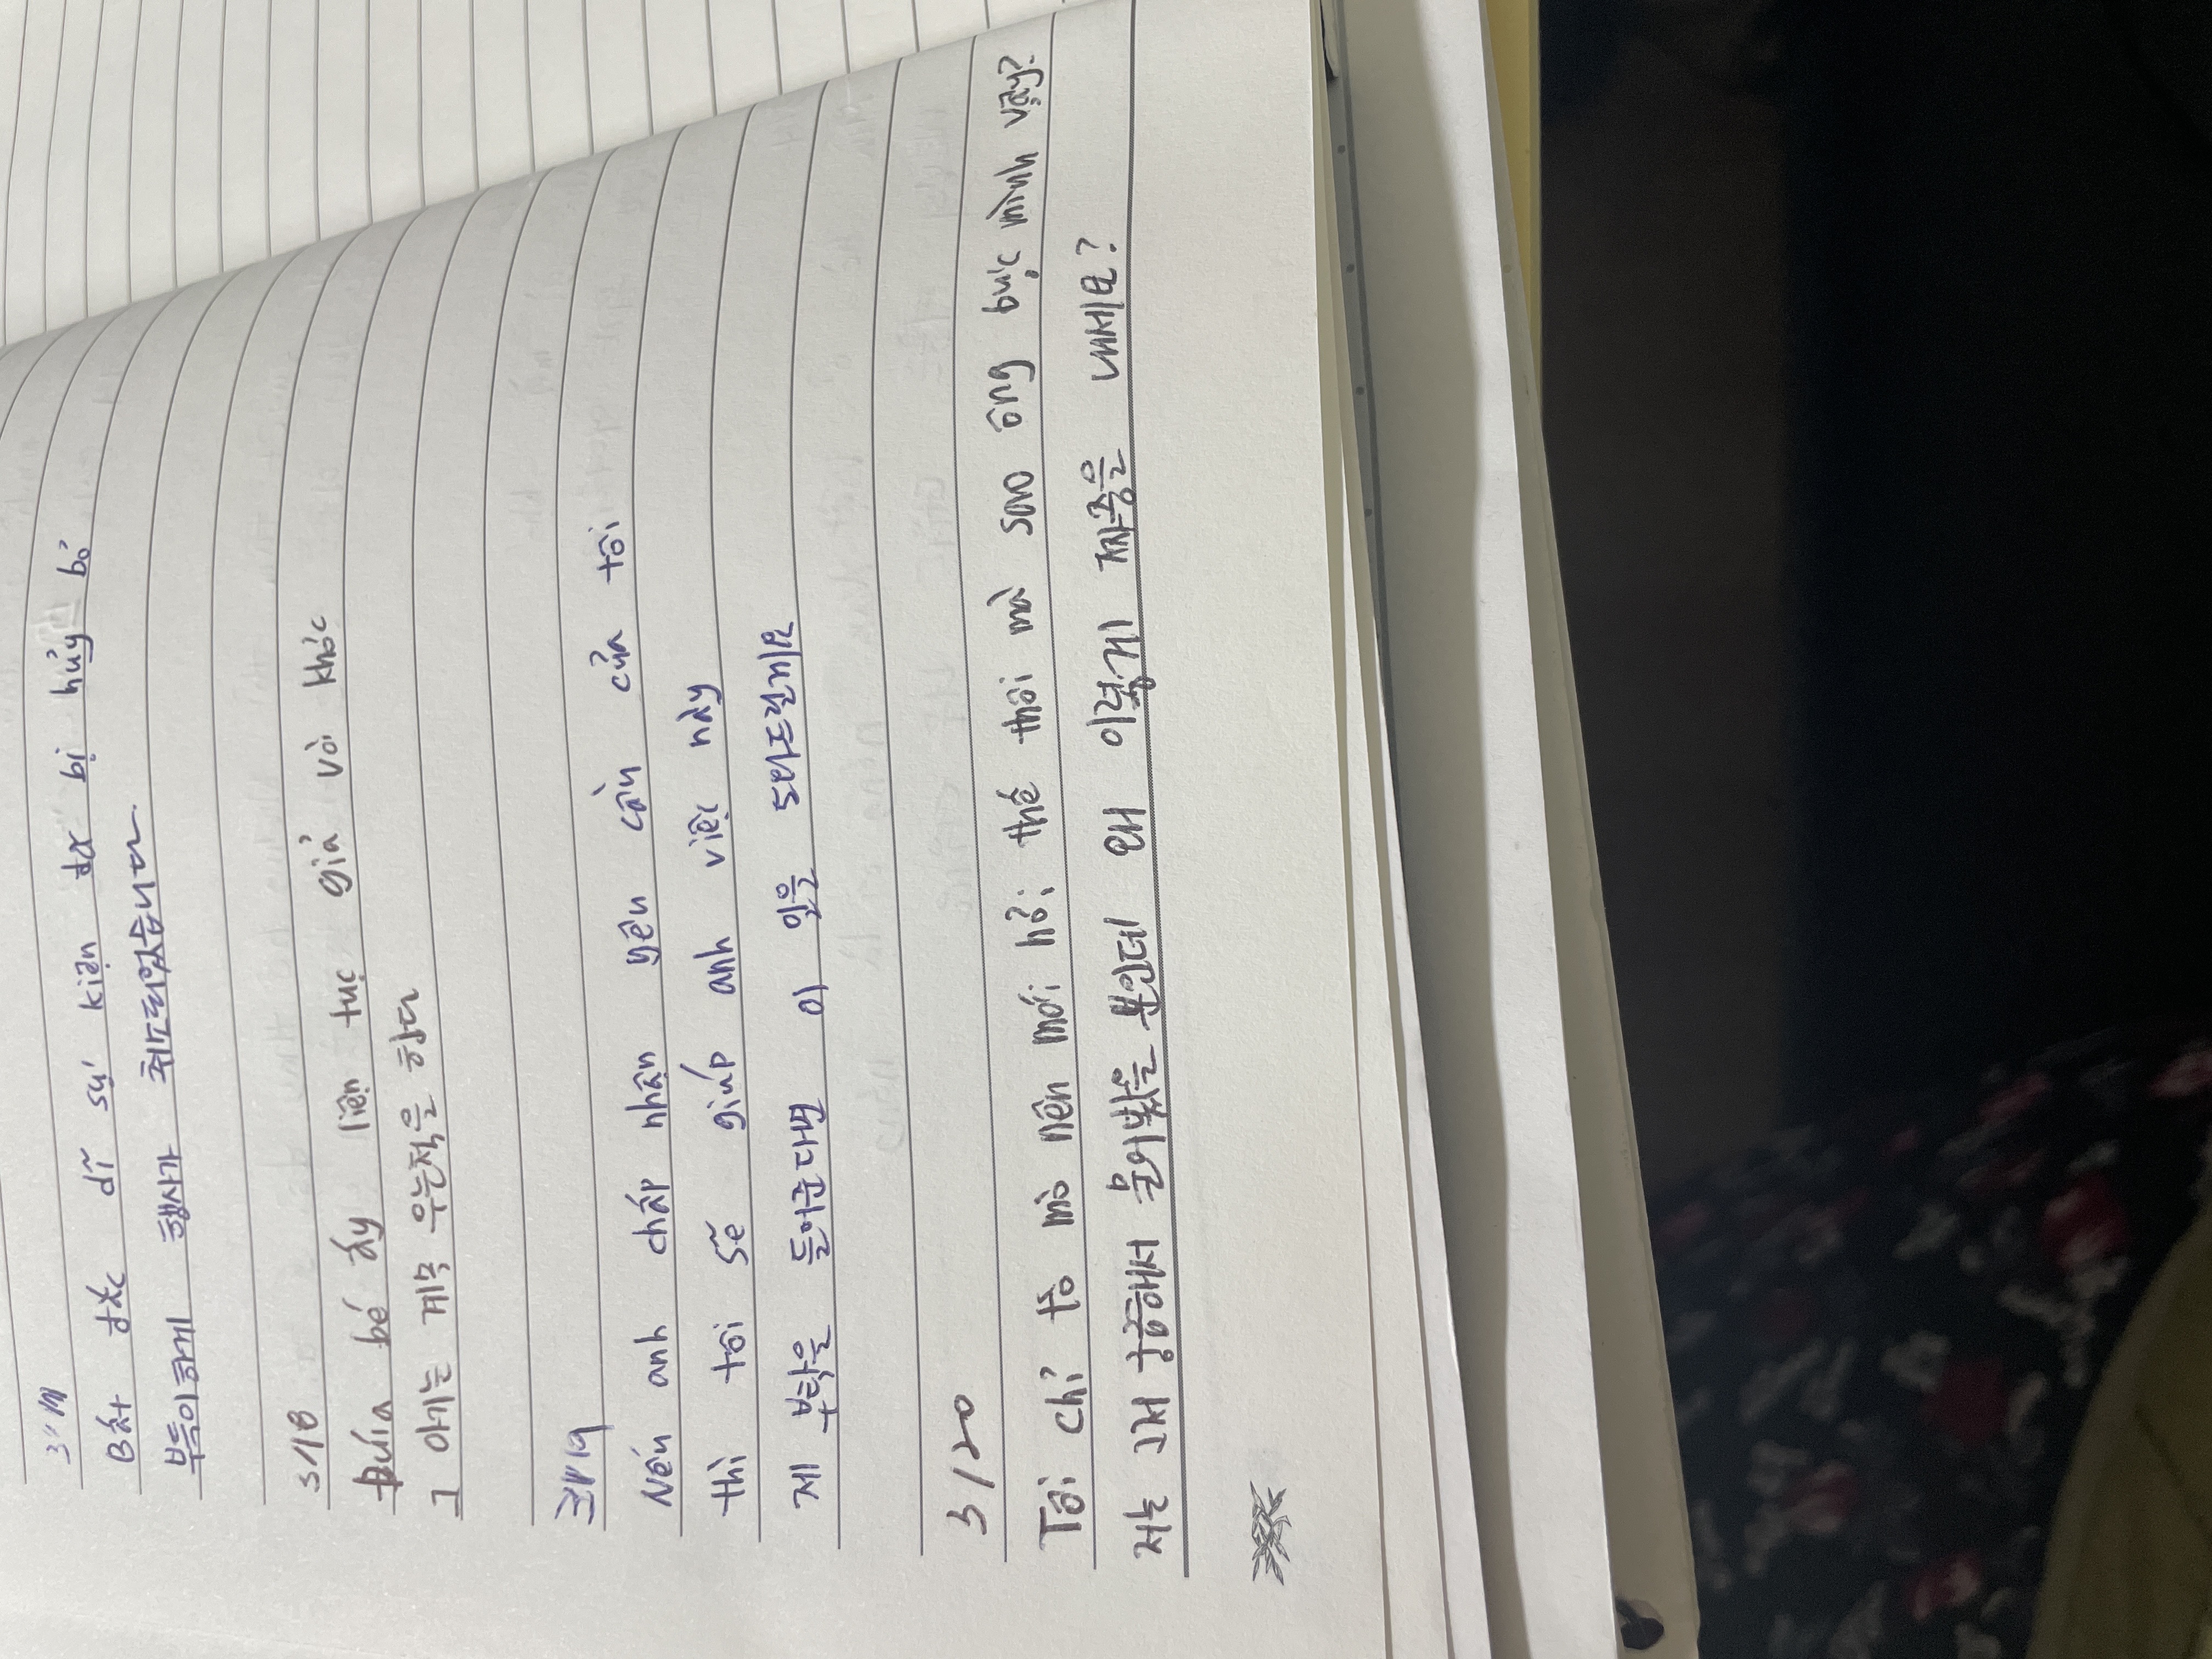 3/17
Bất đắc dĩ sự kiện đã bị hủy bỏ
부득이하게 행사가 취소되었습니다
3/18
Đứa bé ấy liên tục giả vờ khóc
그 아이는 계속 우는척을 하다
3/19
Nếu anh chấp nhận yêu cầu của tôi
thì tôi sẽ giúp anh việc này
제 부탁을 들어준다면 이 일을 도와드릴게요
3/20
Tôi chỉ tò mò nên mới hỏi thế thôi mà sao ông bực mình vậy?
저는 그저 궁금해서 물어봤을 뿐인데 왜 이렇게 짜증을 내세요?